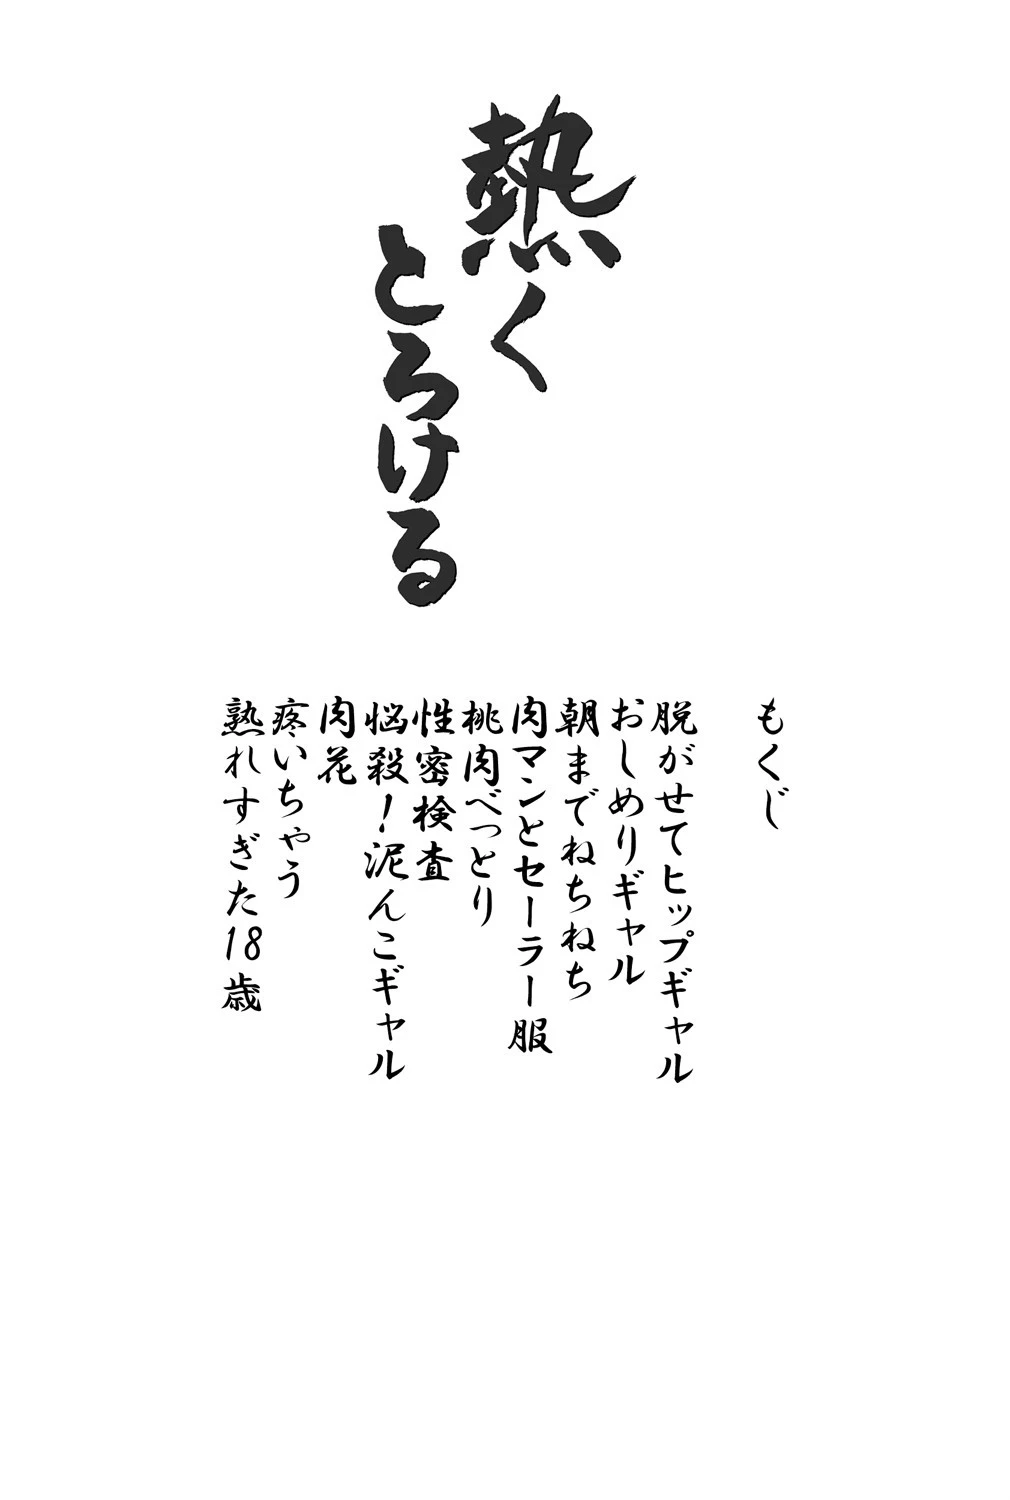 熱く
とろける
もくじ
脱がせてヒップギャル
おしめりギャル
朝までねちねち
肉マンとセーラー服
桃肉べっとり
性密検査
悩殺！泥んこギャル
肉花
疼いちゃう
熟れすぎた18歳